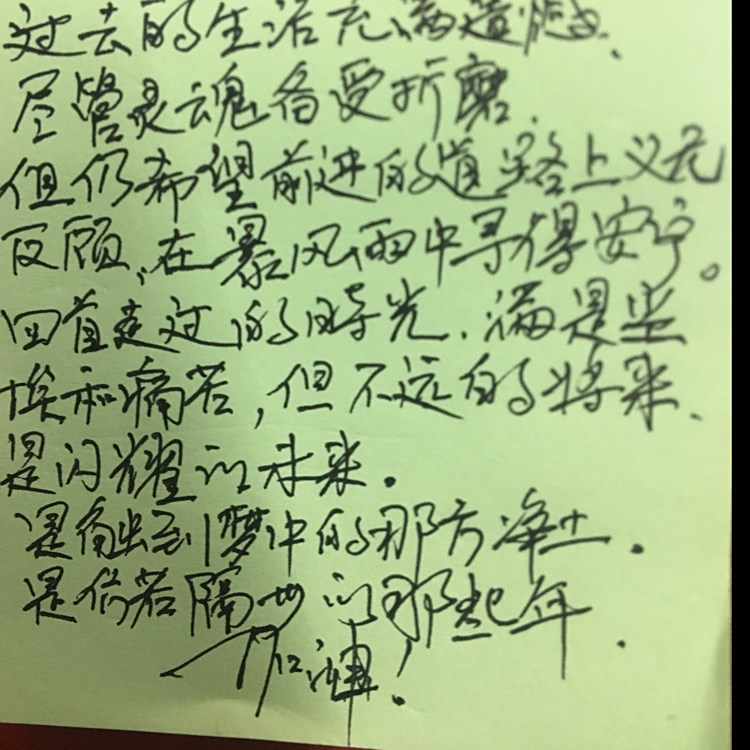 过去的生活充满遗憾、
尽管灵魂备受折磨.
但仍希望前进的道路上义无
反顾、在暴风雨中寻得安宁。
回首走过的时光.满是尘
埃和痛苦,但不远的将来、
是闪耀的未来.
是触到梦中的那方净土.
是仿若隔世的那些年.